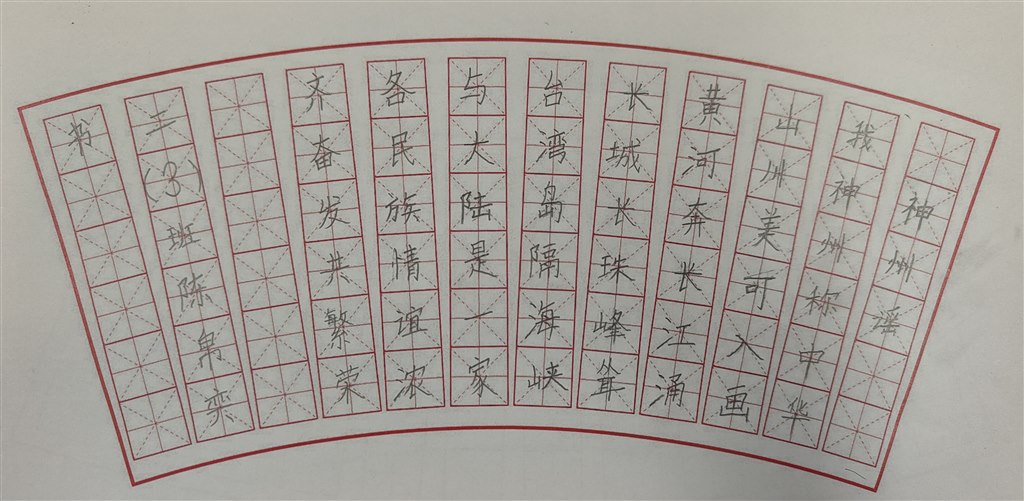 神州谣
我神州称中华
山川美可入画
黄河奔长江涌
长城长珠峰耸
台湾岛隔海峡
与大陆是一家
各民族情谊浓
齐奋发共繁荣
(3)班陈帛奕
书